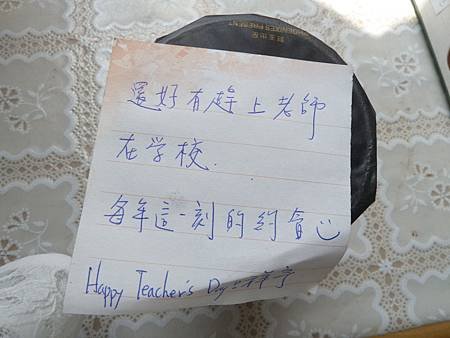 PHOENIXES PRESENT
還好有趕上老師
在学校.
每年這一刻的約會
Happy Teacher's Day!